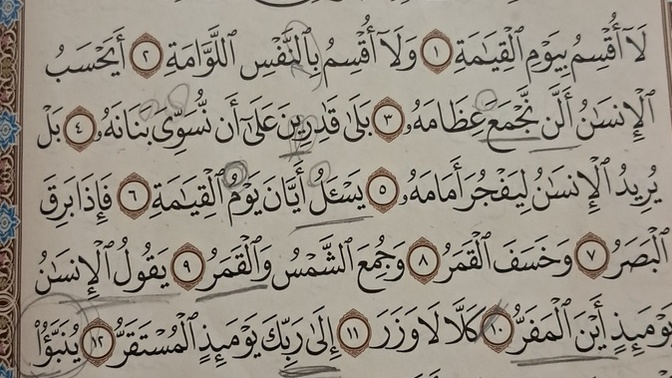 لَآ أُقْسِمُ بِيَوْمِ ٱلْقِيَٰمَةِ ١ وَلَآ أُقْسِمُ بِٱلنَّفْسِ ٱللَّوَّامَةِ ٢ أَيَحْسَبُ
ٱلْإِنسَٰنُ أَلَّن نَّجْمَعَ عِظَامَهُۥ ٣ بَلَىٰ قَٰدِرِينَ عَلَىٰٓ أَن نُّسَوِّىَ بَنَانَهُۥ ٤ بَلْ
يُرِيدُ ٱلْإِنسَٰنُ لِيَفْجُرَ أَمَامَهُۥ ٥ يَسْـَٔلُ أَيَّانَ يَوْمُ ٱلْقِيَٰمَةِ ٦ فَإِذَا بَرِقَ
ٱلْبَصَرُ ٧ وَخَسَفَ ٱلْقَمَرُ ٨ وَجُمِعَ ٱلشَّمْسُ وَٱلْقَمَرُ ٩ يَقُولُ ٱلْإِنسَٰنُ
يَوْمَئِذٍ أَيْنَ ٱلْمَفَرُّ ١٠ كَلَّا لَا وَزَرَ ١١ إِلَىٰ رَبِّكَ يَوْمَئِذٍ ٱلْمُسْتَقَرُّ ١٢ يُنَبَّؤُا۟